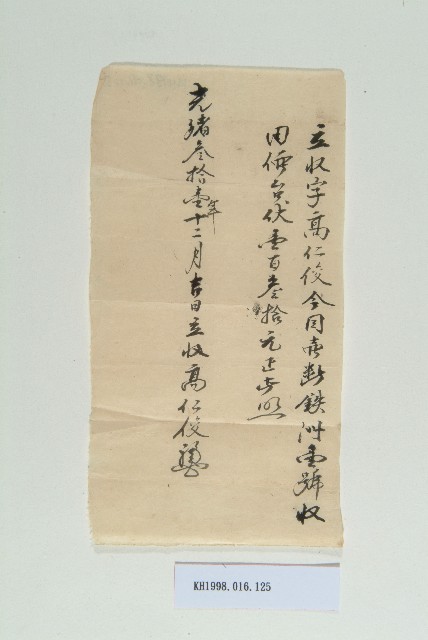 立收字高仁俊今因賣斷鉄洲壹號收
田価台伏壹百叁拾元正此照
光緒叁拾壹年十二月吉日立收高仁俊
KH1998.016.125